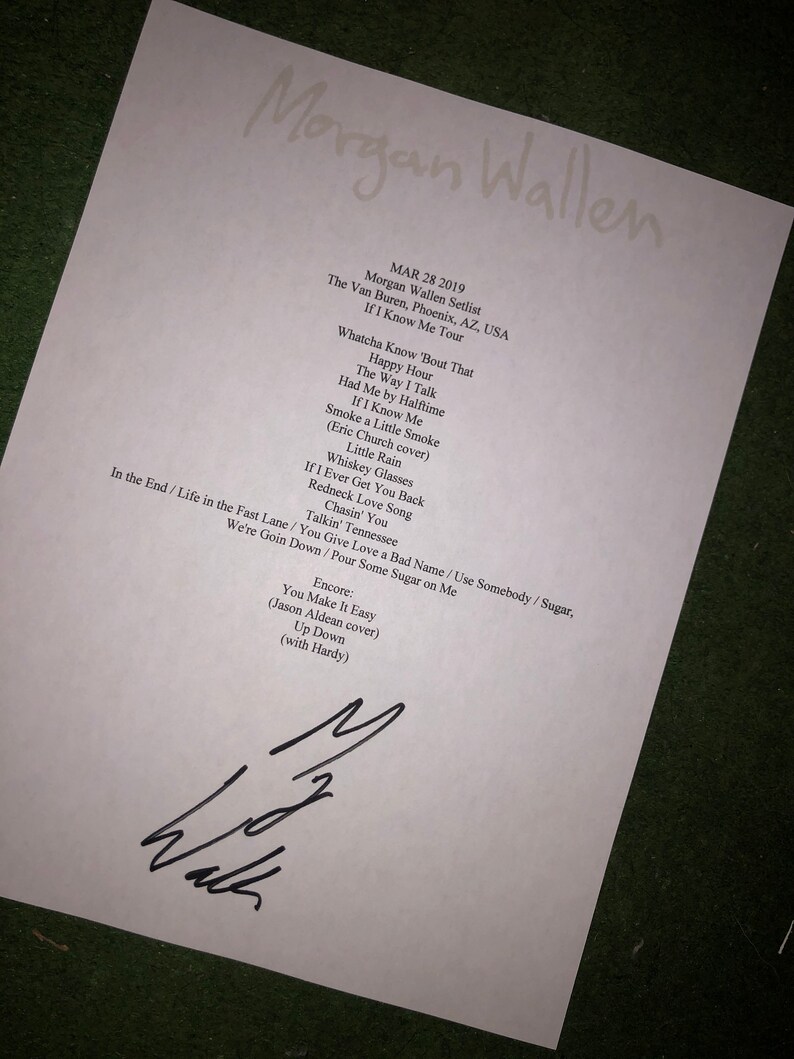 Morgan Wallen
MAR 28 2019
Morgan Wallen Setlist
The Van Buren, Phoenix, AZ, USA
If I Know Me Tour
Whatcha Know 'Bout That
Happy Hour
The Way I Talk
Had Me by Halftime
If I Know Me
Smoke a Little Smoke
(Eric Church cover)
Little Rain
Whiskey Glasses
If I Ever Get You Back
Redneck Love Song
Chasin' You
Talkin' Tennessee
In the End / Life in the Fast Lane / You Give Love a Bad Name / Use Somebody / Sugar,
We're Goin Down / Pour Some Sugar on Me
Encore:
You Make It Easy
(Jason Aldean cover)
Up Down
(with Hardy)